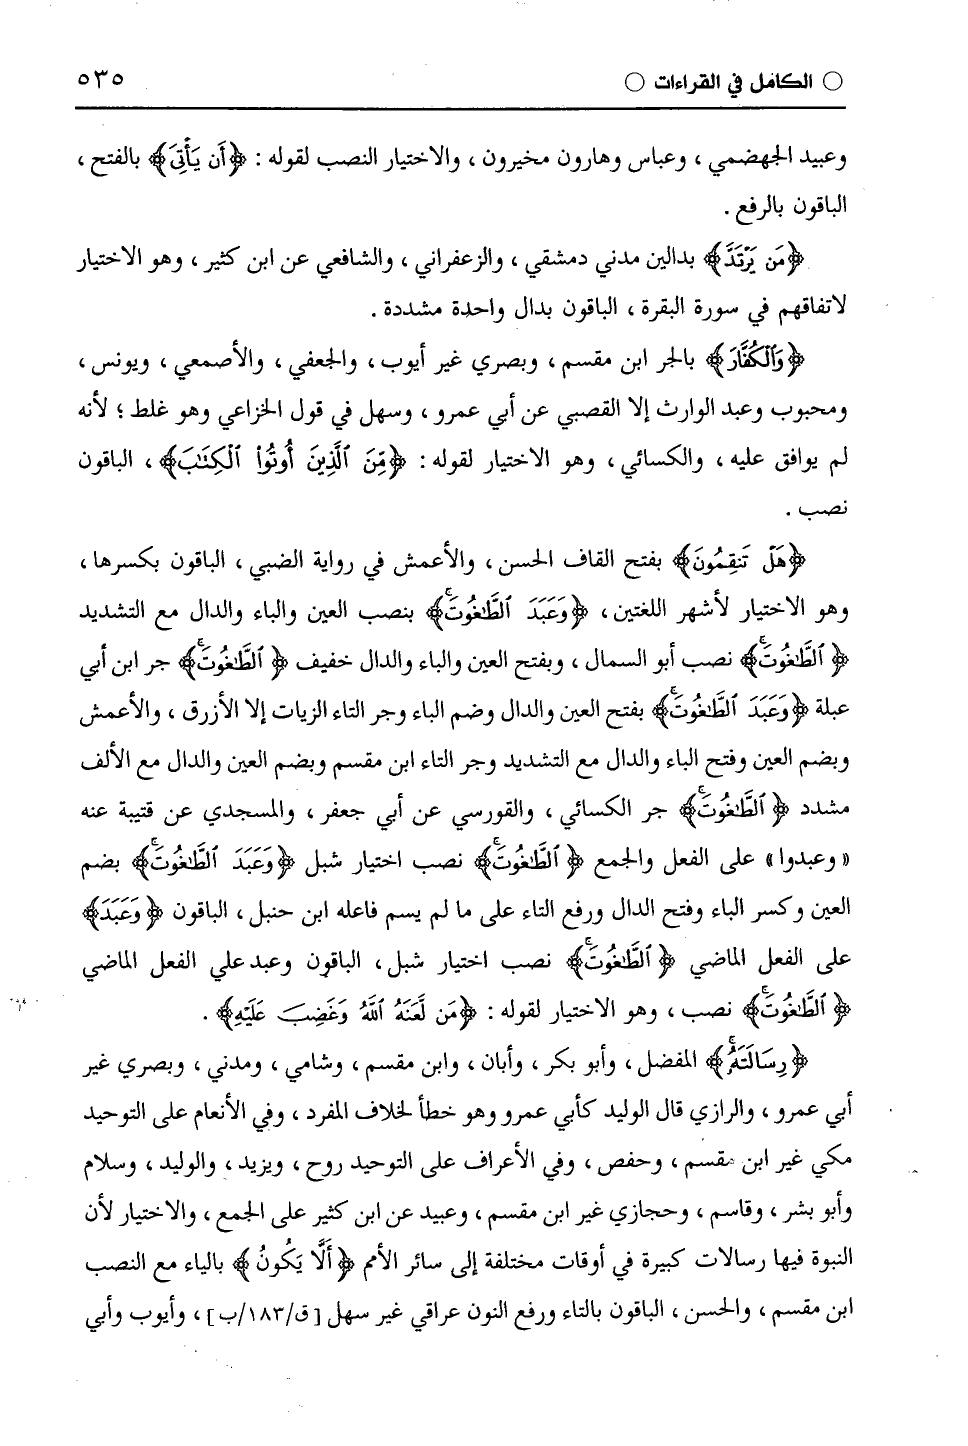 ○ الكامل في القراءات ○ ٥٣٥
وعبيد الجهضمي ، وعباس وهارون مخيرون ، والاختيار النصب لقوله : ﴿أَن يَأْتِىَ﴾ بالفتح ،
الباقون بالرفع .
﴿مَن يَرْتَدَّ﴾ بدالين مدني دمشقي ، والزعفراني ، والشافعي عن ابن كثير ، وهو الاختيار
لاتفاقهم في سورة البقرة ، الباقون بدال واحدة مشددة .
﴿وَٱلْكُفَّارَ﴾ بالجر ابن مقسم ، وبصري غير أيوب ، والجعفي ، والأصمعي ، ويونس ،
ومحبوب وعبد الوارث إلا القصبي عن أبي عمرو ، وسهل في قول الخزاعي وهو غلط ؛ لأنه
لم يوافق عليه ، والكسائي ، وهو الاختيار لقوله : ﴿مِّنَ ٱلَّذِينَ أُوتُوا۟ ٱلْكِتَٰبَ﴾ ، الباقون
نصب .
﴿هَلْ تَنقِمُونَ﴾ بفتح القاف الحسن ، والأعمش في رواية الضبي ، الباقون بكسرها ،
وهو الاختيار لأشهر اللغتين ، ﴿وَعَبَدَ ٱلطَّٰغُوتَۚ﴾ بنصب العين والباء والدال مع التشديد
﴿ٱلطَّٰغُوتَۚ﴾ نصب أبو السمال ، وبفتح العين والباء والدال خفيف ﴿ٱلطَّٰغُوتَۚ﴾ جر ابن أبي
عبلة ﴿وَعَبَدَ ٱلطَّٰغُوتَۚ﴾ بفتح العين والدال وضم الباء وجر التاء الزيات إلا الأزرق ، والأعمش
وبضم العين وفتح الباء والدال مع التشديد وجر التاء ابن مقسم وبضم العين والدال مع الألف
مشدد ﴿ٱلطَّٰغُوتَۚ﴾ جر الكسائي ، والقورسي عن أبي جعفر ، والمسجدي عن قتيبة عنه
« وعبدوا » على الفعل والجمع ﴿ٱلطَّٰغُوتَۚ﴾ نصب اختيار شبل ﴿وَعَبَدَ ٱلطَّٰغُوتَۚ﴾ بضم
العين وكسر الباء وفتح الدال ورفع التاء على ما لم يسم فاعله ابن حنبل ، الباقون ﴿وَعَبَدَ﴾
على الفعل الماضي ﴿ٱلطَّٰغُوتَۚ﴾ نصب اختيار شبل ، الباقون وعبد علي الفعل الماضي
﴿ٱلطَّٰغُوتَۚ﴾ نصب ، وهو الاختيار لقوله : ﴿مَن لَّعَنَهُ ٱللَّهُ وَغَضِبَ عَلَيْهِ﴾ .
﴿رِسَالَتَهُۥۚ﴾ المفضل ، وأبو بكر ، وأبان ، وابن مقسم ، وشامي ، ومدني ، وبصري غير
أبي عمرو ، والرازي قال الوليد كأبي عمرو وهو خطأ لخلاف المفرد ، وفي الأنعام على التوحيد
مكي غير ابن مقسم ، وحفص ، وفي الأعراف على التوحيد روح ، ويزيد ، والوليد ، وسلام
وأبو بشر ، وقاسم ، وحجازي غير ابن مقسم ، وعبيد عن ابن كثير على الجمع ، والاختيار لأن
النبوة فيها رسالات كبيرة في أوقات مختلفة إلى سائر الأمم ﴿أَلَّا يَكُونُ﴾ بالياء مع النصب
ابن مقسم ، والحسن ، الباقون بالتاء ورفع النون عراقي غير سهل [ق/١٨٣/ب] ، وأيوب وأبي